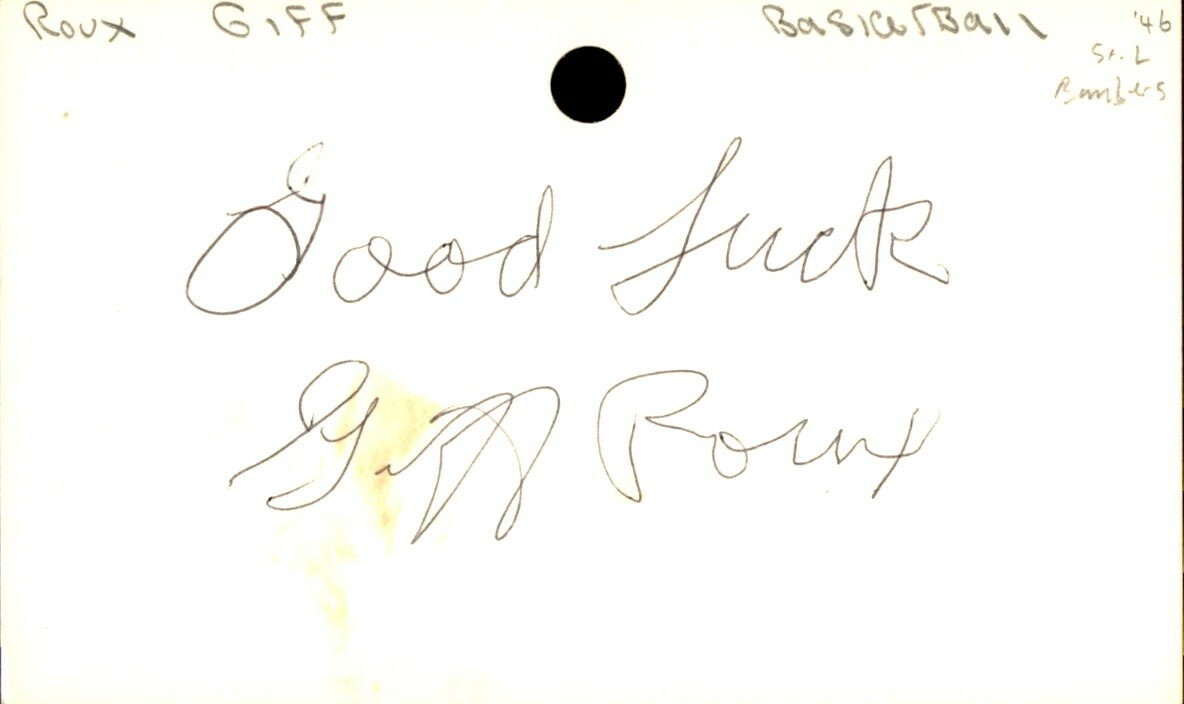 Roux GIFF BasketBall '46
St. L
Bombers
Good Luck
Giff Roux